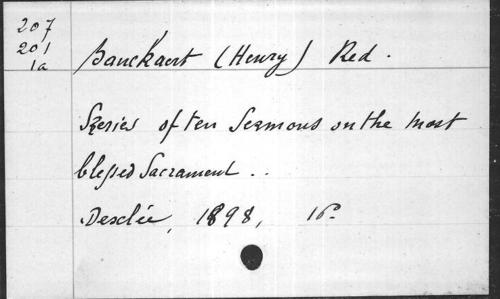 207
201
1a
Banckaert (Henry) Red.
Series of ten Sermons on the most
blessed Sacrament ..
Desclée, 1898, 16º